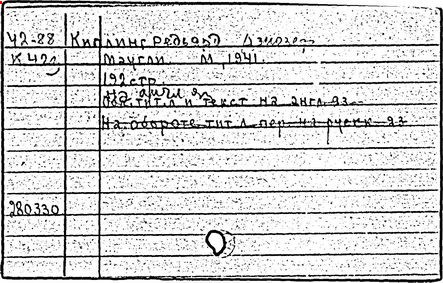 42-88 Киплинг Редьярд Джозеф
К 421 Маугли. М., 1941.
192 стр.
На англ. яз.
тит. л. и текст на англ. яз.
На обороте тит. л. пер. на русск. яз.
280330